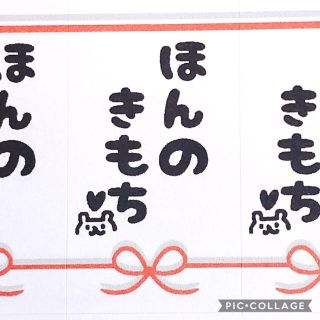 ほんの
きもち
ほんの
きもち
PIC•COLLAGE